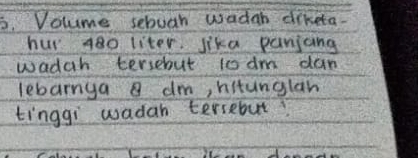 5. Volume sebuah wadah diketa-
hui 480 liter. Jika panjang
wadah tersebut 10 dm dan
lebarnya 8 dm, hitunglah
tinggi wadah tersebut!